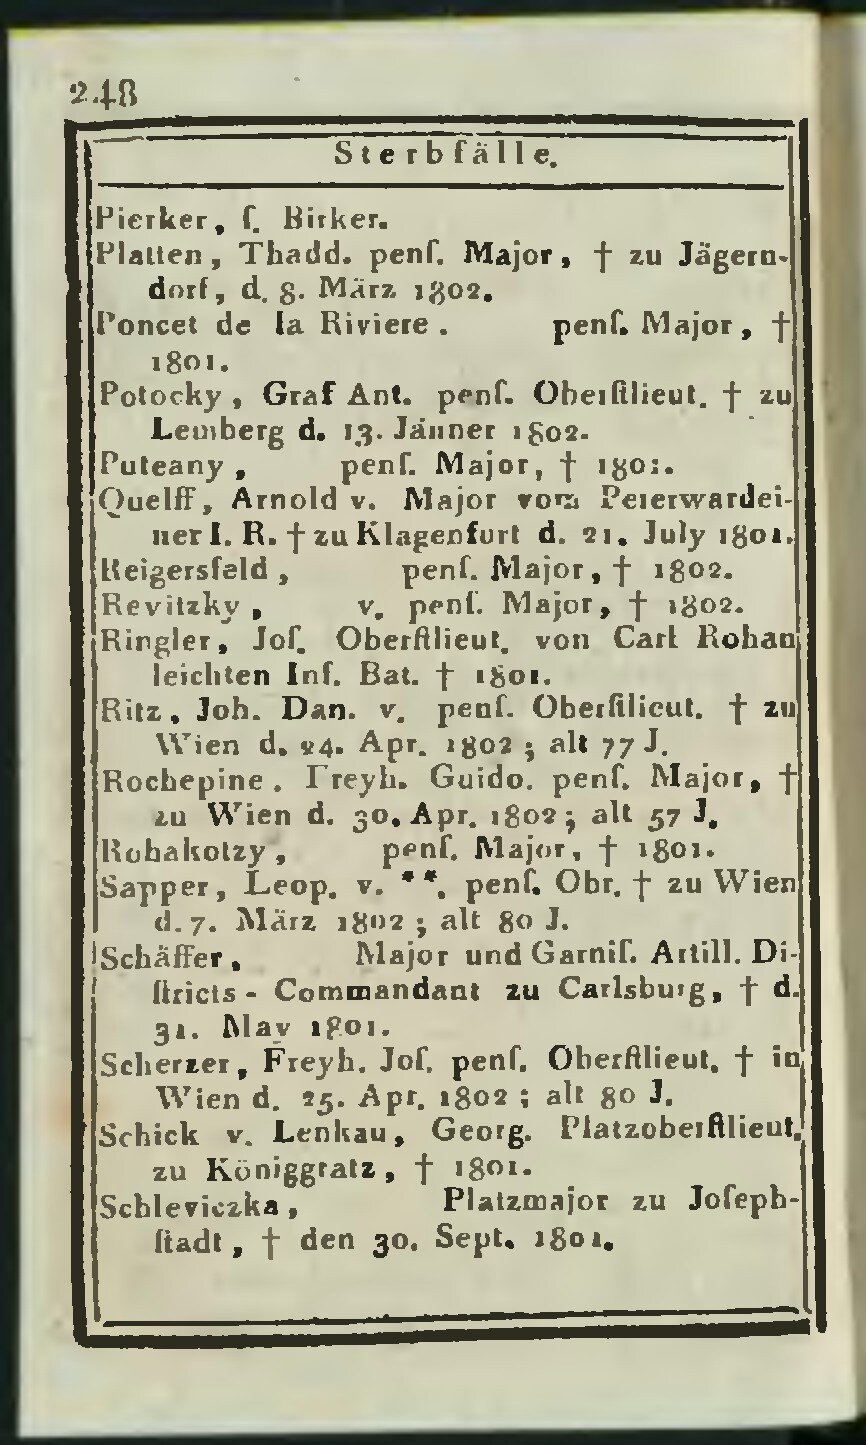 248
Sterbfälle.
Pierker, ſ. Birker.
Platten, Thadd. penſ. Major, † zu Jägern-
dorf, d. 8. März 1802.
Poncet de la Riviere. penſ. Major, †
1801.
Potocky, Graf Ant. penſ. Oberſtlieut. † zu
Lemberg d. 13. Jänner 1802.
Puteany, penſ. Major, †
Quelff, Arnold v. Major vom Peterwardei-
ner I. R. † zu Klagenfurt d. 21. July 1801.
Reigersfeld, penſ. Major, † 1802.
Revitzky, v. penſ. Major, † 1802.
Ringler, Joſ. Oberſtlieut. von Carl Rohan
leichten Inf. Bat. † 1801.
Ritz, Joh. Dan. v. penſ. Oberſtlieut. † zu
Wien d. 24. Apr. 1802; alt 77 J.
Rochepine. Freyh. Guido. penſ. Major, †
zu Wien d. 30. Apr. 1802; alt 57 J.
Rohakotzy, penſ. Major, † 1801.
Sapper, Leop. v. **. penſ. Obr. † zu Wien
d. 7. März 1802; alt 80 J.
Schäffer, Major und Garniſ. Artill. Di-
ſtricts-Commandant zu Carlsburg, † d.
31. May 1801.
Scherzer, Freyh. Joſ. penſ. Oberſtlieut. † in
Wien d. 25. Apr. 1802; alt 80 J.
Schick v. Lenkau, Georg. Platzoberſtlieut.
zu Königgratz, † 1801.
Schleviczka, Platzmajor zu Joſeph-
ſtadt, † den 30. Sept. 1801.